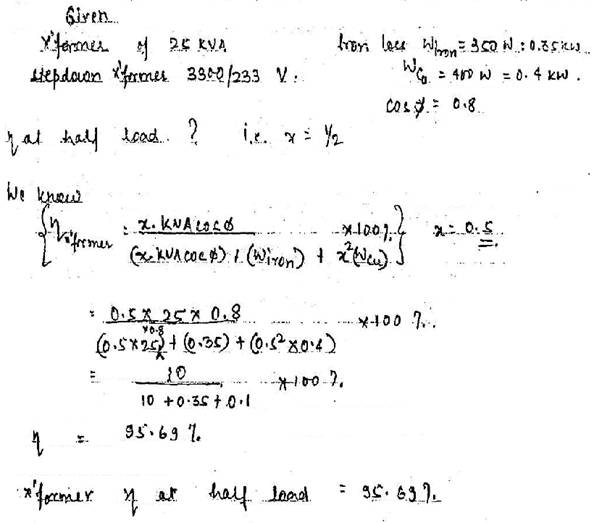 Given
x'former of 25 KVA
Iron loss Wiron = 350 W : 0.35 kw
stepdown x'former 3300/233 V.
Wcu = 400 W = 0.4 kw.
cos φ = 0.8
η at half load. ? i.e. x = 1/2
We know
{ηx'former = x. KVA cos φ / (x. KVA cos φ) + (Wiron) + x²(Wcu) × 100%} x = 0.5
= 0.5 × 25 × 0.8 / (0.5 × 25 × 0.8) + (0.35) + (0.5² × 0.4) × 100 %.
= 10 / 10 + 0.35 + 0.1 × 100 %.
η = 95.69 %.
x'former η at half load = 95.69 %.